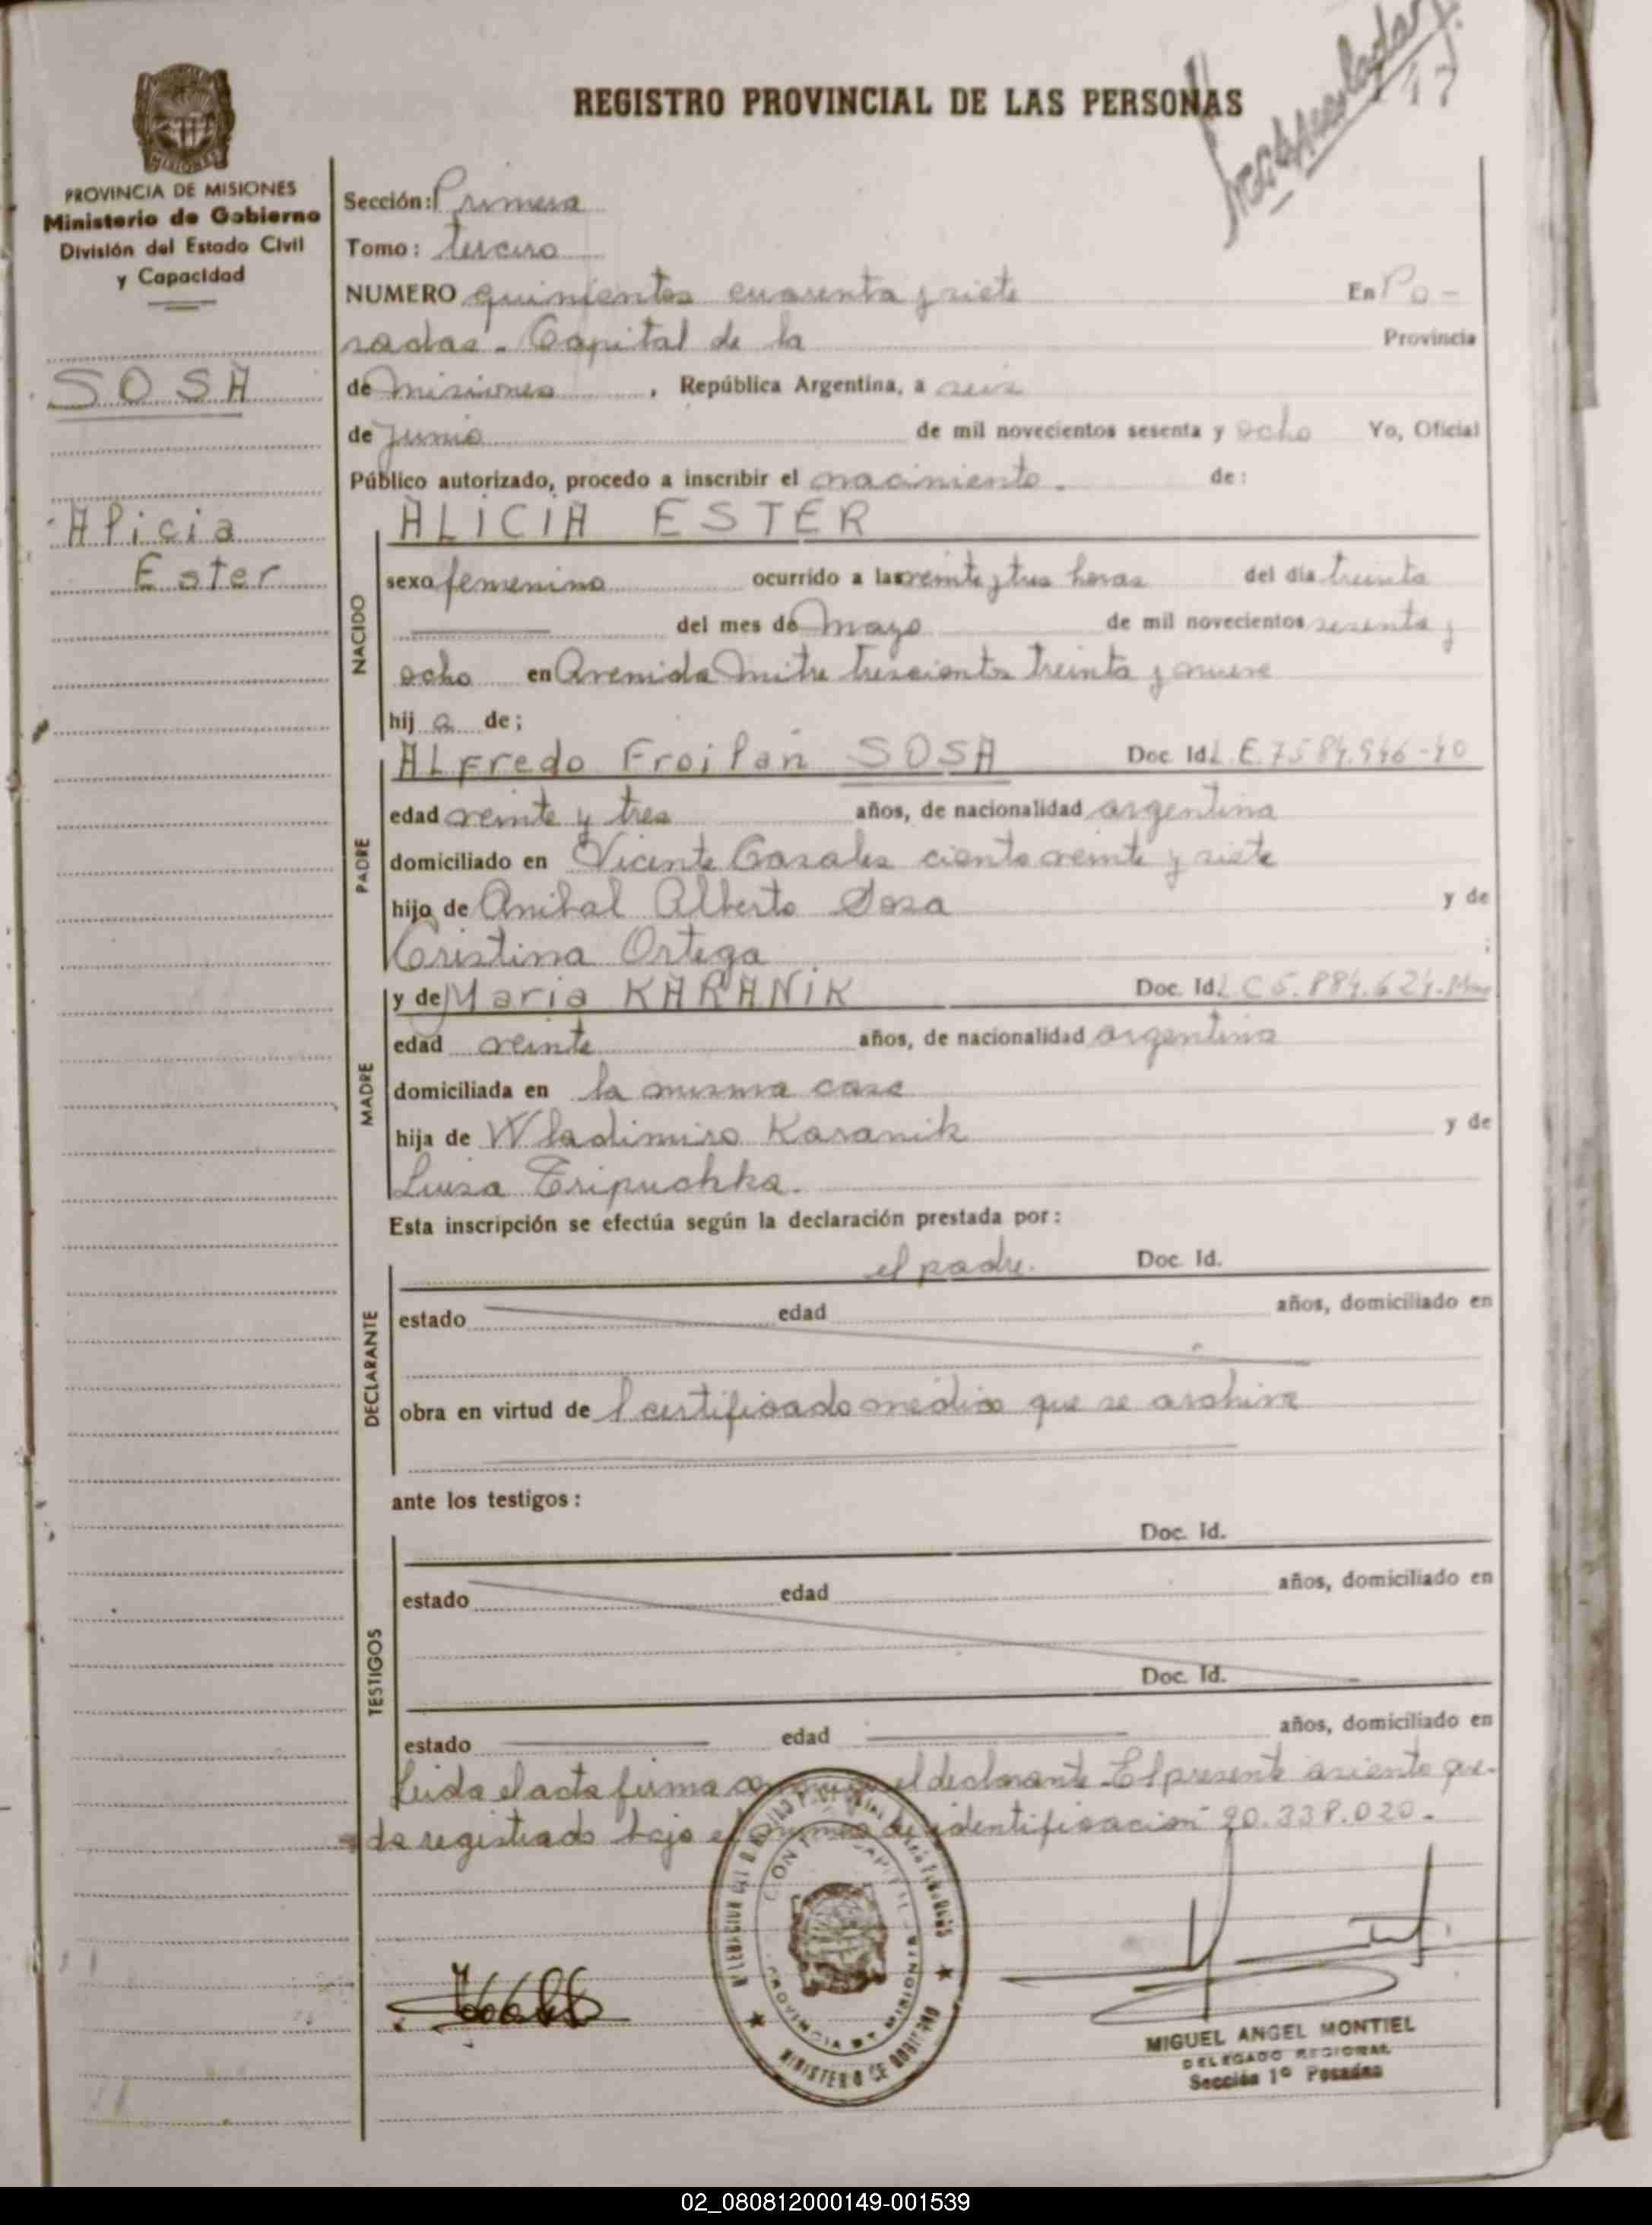 REGISTRO PROVINCIAL DE LAS PERSONAS
17
MISIONES
PROVINCIA DE MISIONES
Ministerio de Gobierno
División del Estado Civil
y Capacidad
SOSA
Alicia
Ester
Sección: Primera
Tomo: tercero
NUMERO quinientos cuarenta y siete En Po-
sadas. Capital de la Provincia
de Misiones, República Argentina, a seis
de Junio de mil novecientos sesenta y ocho Yo, Oficial
Público autorizado, procedo a inscribir el nacimiento. de:
ALICIA ESTER
NACIDO
sexo femenino ocurrido a las veinte y tres horas del día treinta
del mes de Mayo de mil novecientos sesenta y
ocho en Avenida Mitre trescientos treinta y nueve
hij a de;
PADRE
ALFredo Froilan SOSA Doc. Id. L.E. 7584.946-40
edad veinte y tres años, de nacionalidad argentina
domiciliado en Vicente Casales ciento veinte y siete
hijo de Anibal Alberto Sosa y de
Cristina Ortega ;
MADRE
y de Maria KARANIK Doc. Id. L.C 5.884.624.
edad veinte años, de nacionalidad argentina
domiciliada en la misma casa
hija de Wladimiro Karanik y de
Luisa Tripuchka.
Esta inscripción se efectúa según la declaración prestada por:
DECLARANTE
el padre. Doc. Id.
estado edad años, domiciliado en
obra en virtud de l certificado médico que se archiva
ante los testigos:
TESTIGOS
Doc. Id.
estado edad años, domiciliado en
Doc. Id.
estado edad años, domiciliado en
Leida el acta firma el declarante. El presente asiento que-
da registrado bajo el numero de identificacion 20.338.020.
PROVINCIA DE MISIONES
MINISTERIO DE GOBIERNO
MIGUEL ANGEL MONTIEL
DELEGADO REGIONAL
Sección 1º Posadas
02_080812000149-001539